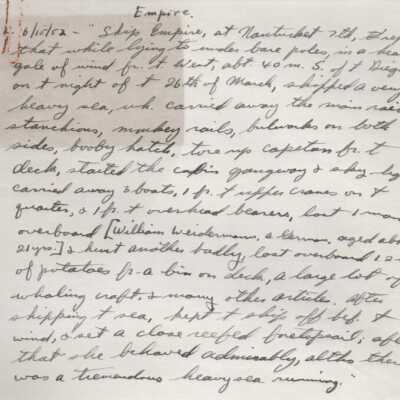 Empire.
6/15/52 - "Ship Empire, at Nantucket 7th, & rep
that while lying to under bare poles, in a hea
gale of wind fr. t West, abt 40 m. S. of t Dieg
on t night of t 26th of March, shipped a very
heavy sea, wh. carried away the main rail
stanchions, monkey rails, bulwarks on both
sides, booby hatch, tore up capstan fr. t
deck, started the cabin gangway & sky-lig
carried away 3 boats, 1 fr. t upper cranes on t
quarter, & 1 fr. t overhead bearers, lost 1 man
overboard [William Weidermann, a German, aged ab
21 yrs.] & hurt another badly, lost overboard 12
of potatoes fr. a bin on deck, a large lot of
whaling craft, & many other articles. After
shipping t sea, kept t ship off bef. t
wind, & set a close reefed foretopsail; aft
that she behaved admirably, altho ther
was a tremendous heavy sea running."